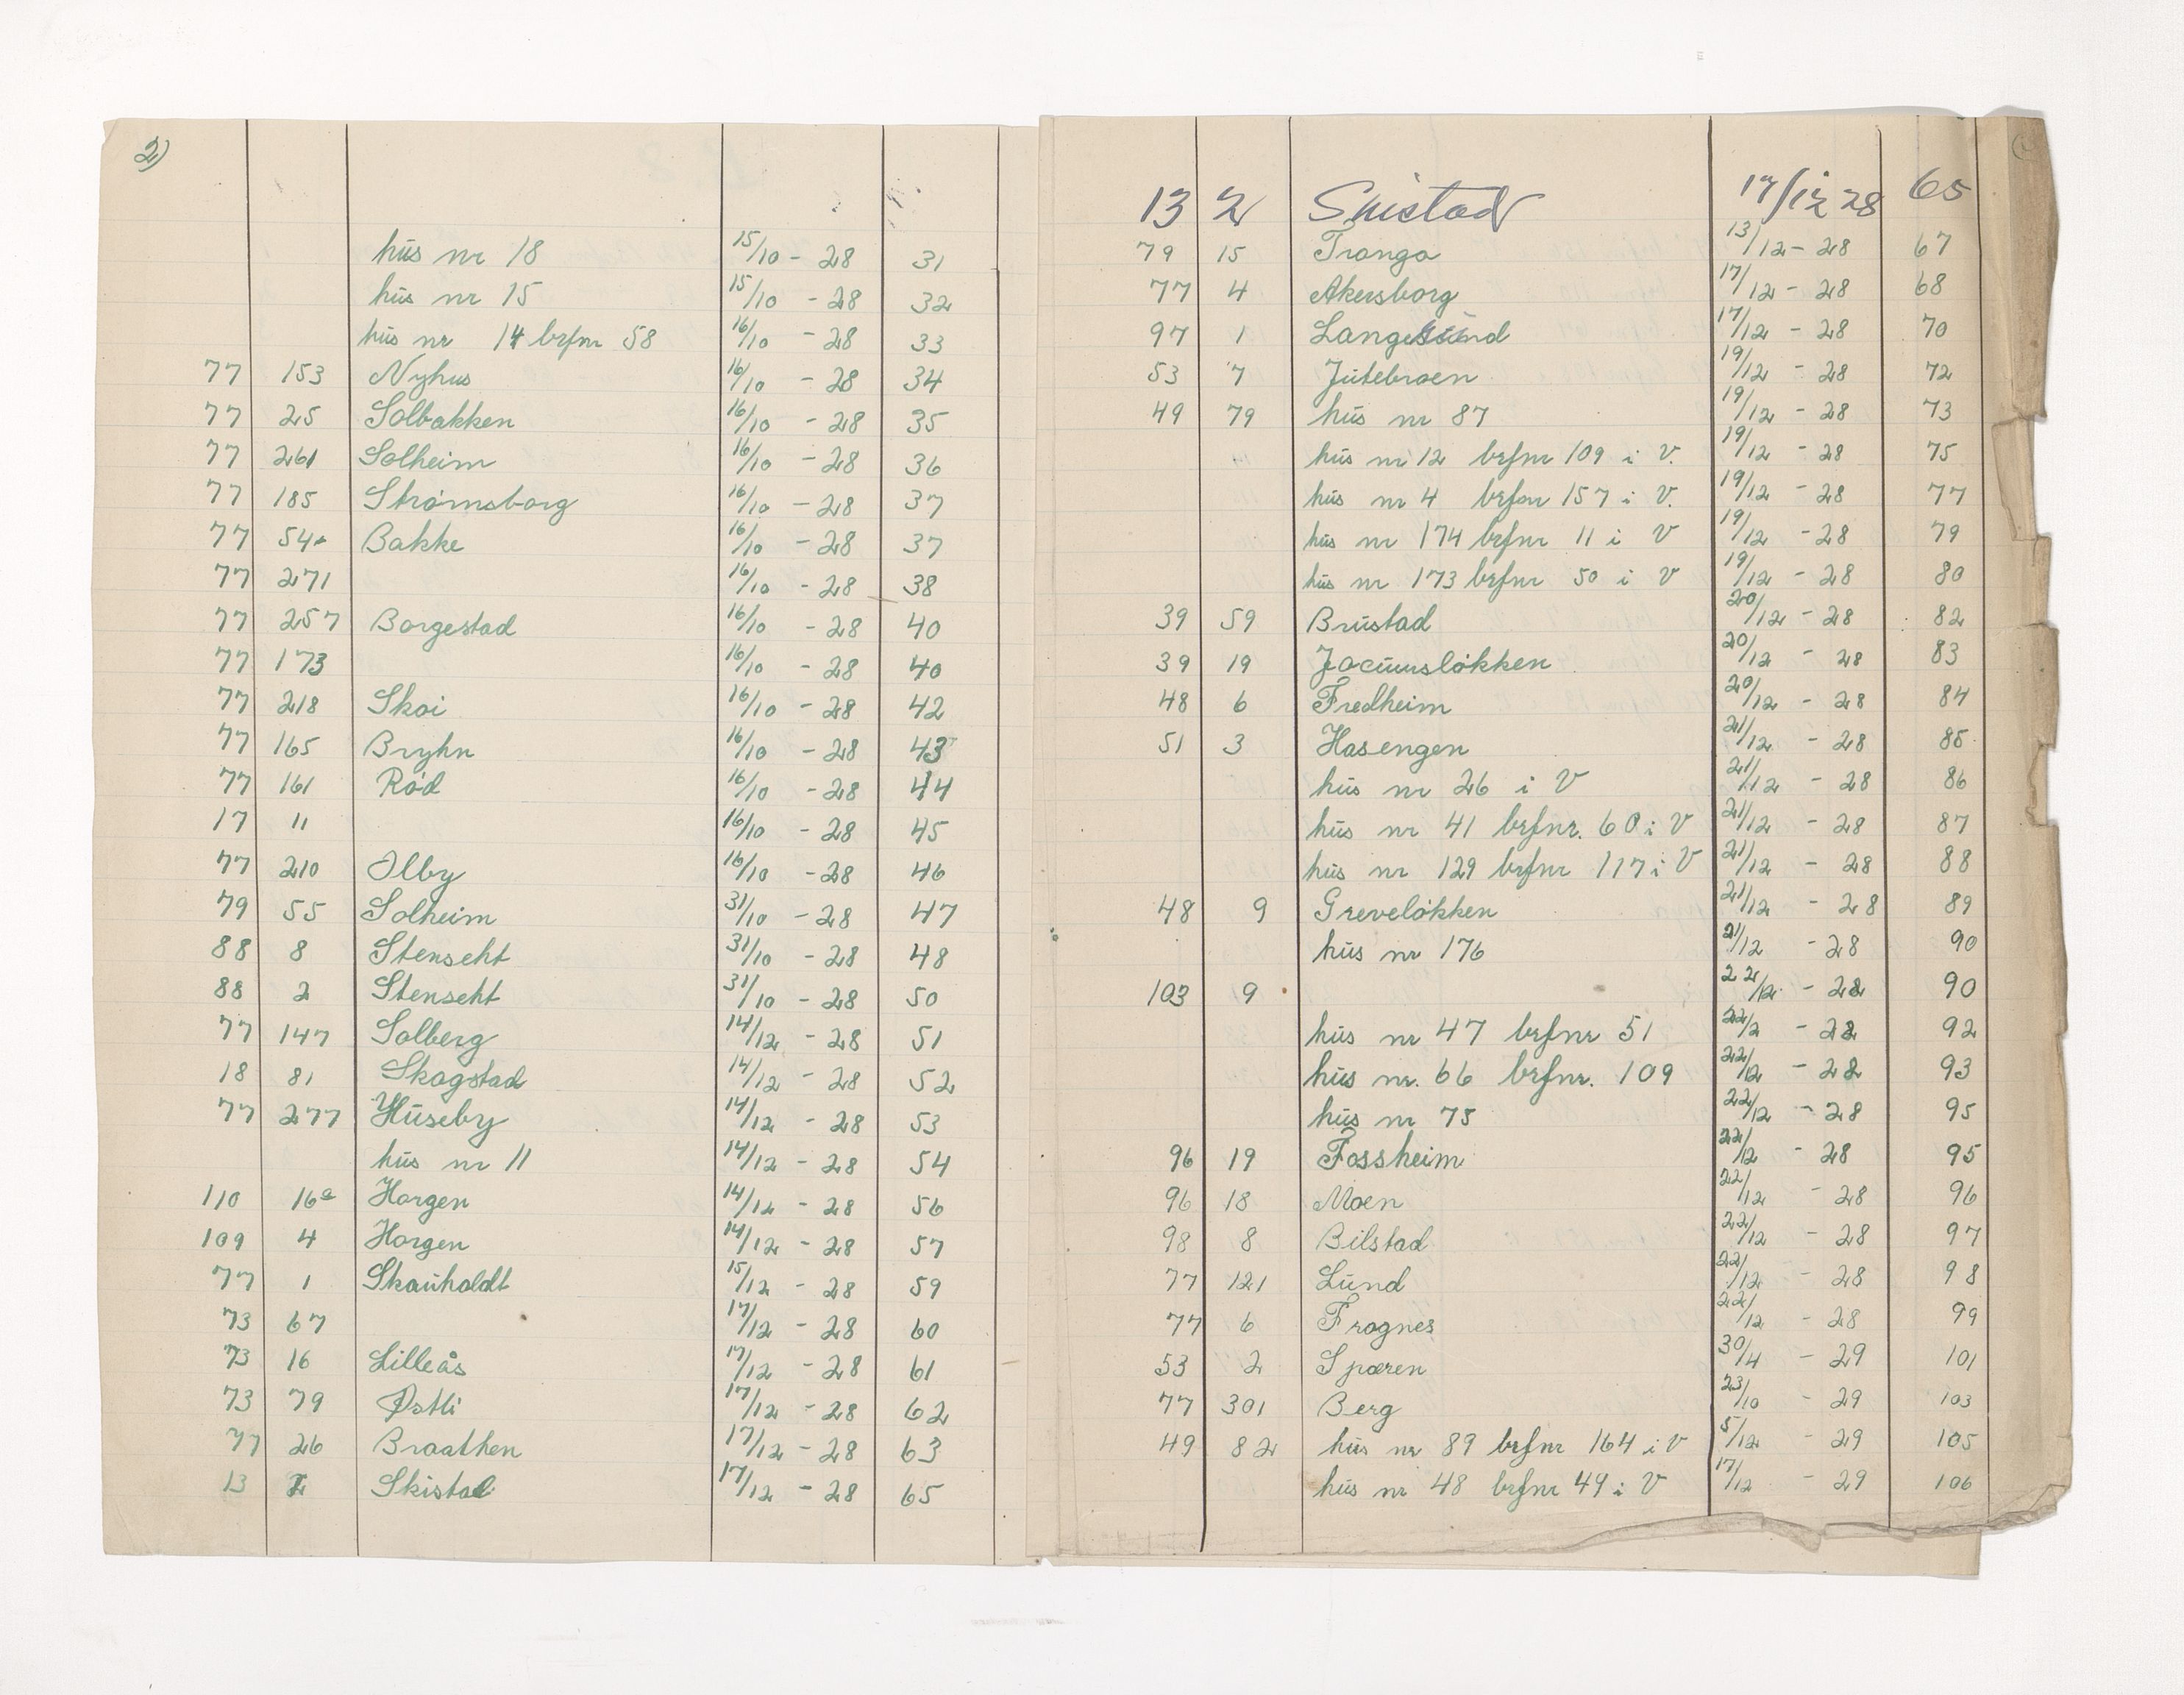 2)
hus nr 18 15/10 - 28 31
hus nr 15 15/10 - 28 32
hus nr 14 brfnr 58 16/10 - 28 33
77 153 Nyhus 16/10 - 28 34
77 25 Solbakken 16/10 - 28 35
77 261 Solheim 16/10 - 28 36
77 185 Strømsborg 16/10 - 28 37
77 54 Bakke 16/10 - 28 37
77 271 16/10 - 28 38
77 257 Borgestad 16/10 - 28 40
77 173 16/10 - 28 40
77 218 Skoi 16/10 - 28 42
77 165 Bryhn 16/10 - 28 43
77 161 Rød 16/10 - 28 44
17 11 16/10 - 28 45
77 210 Olby 16/10 - 28 46
79 55 Solheim 31/10 - 28 47
88 8 Stenseht 31/10 - 28 48
88 2 Stenseht 31/10 - 28 50
77 147 Solberg 14/12 - 28 51
18 81 Skogstad 14/12 - 28 52
77 277 Huseby 14/12 - 28 53
hus nr 11 14/12 - 28 54
110 16a Horgen 14/12 - 28 56
109 4 Horgen 14/12 - 28 57
77 1 Skauholdt 15/12 - 28 59
73 67 17/12 - 28 60
73 16 Lilleås 17/12 - 28 61
73 79 Østli 17/12 - 28 62
77 26 Braathen 17/12 - 28 63
13 2 Skistad 17/12 - 28 65
13 2 Skistad 17/12 28 65
79 15 Tranga 13/12 - 28 67
77 4 Akersborg 17/12 - 28 68
97 1 Langesund 17/12 - 28 70
53 7 Jutebraen 19/12 - 28 72
49 79 hus nr 87 19/12 - 28 73
hus nr 12 brfnr 109 i V. 19/12 - 28 75
hus nr 4 brfnr 157 i V. 19/12 - 28 77
hus nr 174 brfnr 11 i V 19/12 - 28 79
hus nr 173 brfnr 50 i V 19/12 - 28 80
39 59 Brustad 20/12 - 28 82
39 19 20/12 - 28 83
48 6 Fredheim 20/12 - 28 84
51 3 Hasengen 21/12 - 28 85
hus nr 26 i V 21/12 - 28 86
hus nr 41 brfnr. 60 i V 21/12 - 28 87
hus nr 129 brfnr 117 i V 21/12 - 28 88
48 9 Greveløkken 21/12 - 28 89
hus nr 176 21/12 - 28 90
103 9 22/12 - 28 90
hus nr 47 brfnr 51 22/12 - 28 92
hus nr. 66 brfnr. 109 22/12 - 28 93
hus nr 75 22/12 - 28 95
96 19 Fossheim 22/12 - 28 95
96 18 Moen 22/12 - 28 96
98 8 Bilstad 22/12 - 28 97
77 121 Lund 22/12 - 28 98
77 6 Frognes 22/12 - 28 99
53 2 Spæren 30/4 - 29 101
77 301 Berg 23/10 - 29 103
49 82 hus nr 89 brfnr 164 i V 5/12 - 29 105
hus nr 48 brfnr 49 i V 17/12 - 29 106